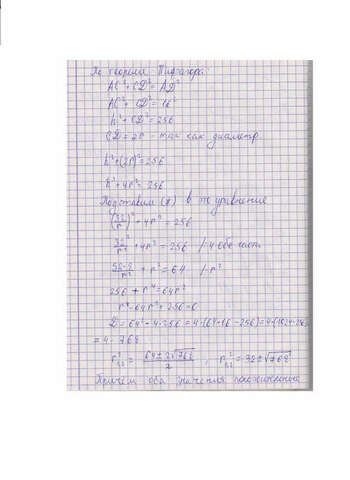 По теореме Пифагора:
AC² + CD² = AD²
AC² + CD² = 16²
h² + CD² = 256
CD = 2r - так как диаметр
h² + (2r)² = 256
h² + 4r² = 256
Подставим (*) в то уравнение
(32/r)² + 4r² = 256
32²/r² + 4r² = 256 /:4 обе част.
+ r² = 64 /·r²
256 + r⁴ = 64r²
r⁴ - 64r² + 256 = 0
D = 64² - 4·256 = 4·(64·16 - 256) = 4·(1024-256)
= 4·768
r²₁,₂ = (64 ± 2√768)/2 , r²₁,₂ = 32 ± √768
Причём оба значения положительные